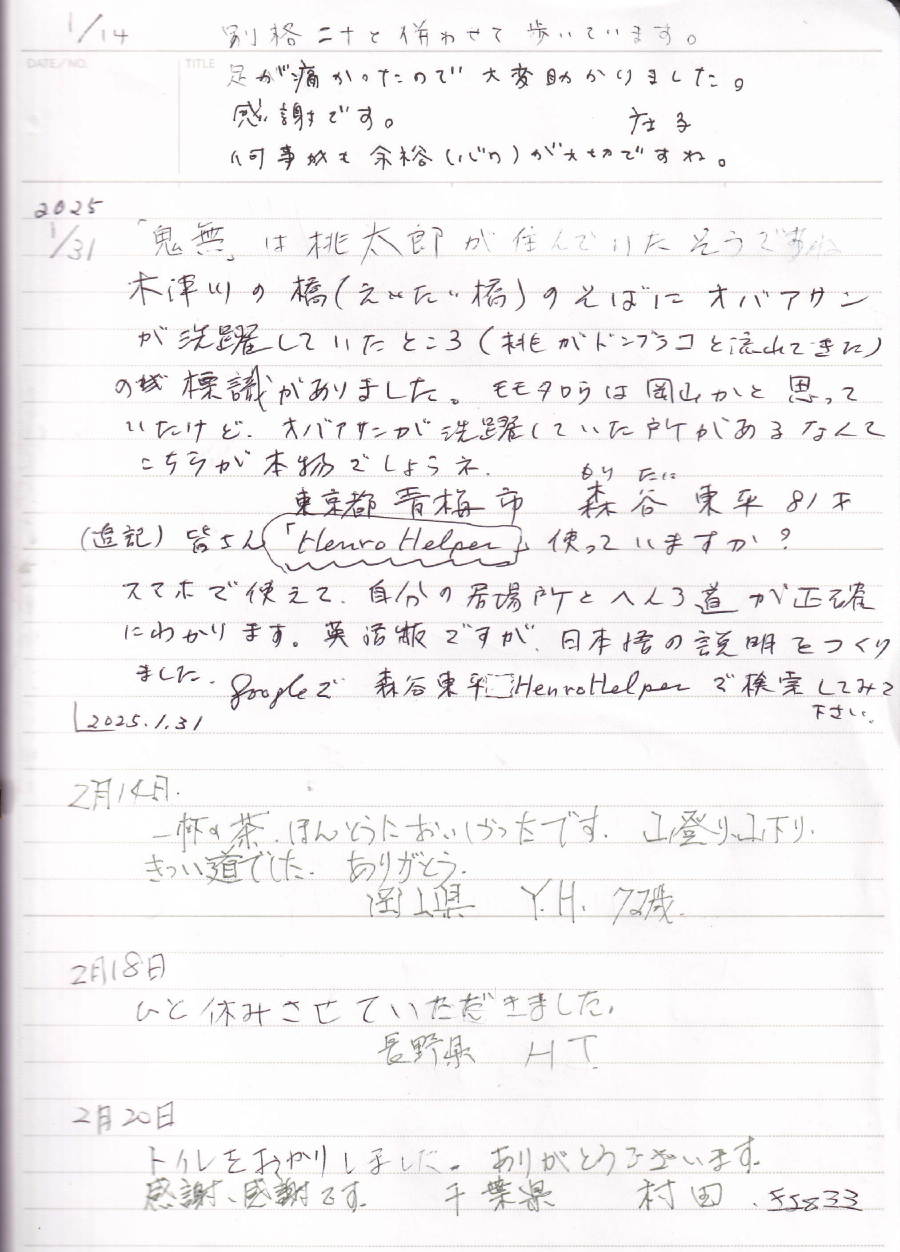 1/14 別格二十と併わせて歩いています。
DATE/NO. TITLE
足が痛かったので大変助かりました。
感謝です。
何事にも余裕(心の)が大切ですね。
2025
1/31 「鬼無」は桃太郎が住んでいたそうですね
木津川の橋(えいたい橋)のそばにオバアサン
が洗躍していたところ(桃がドンブラコと流れてきた)
の 標識がありました。モモタロウは岡山かと思って
いたけど、オバアサンが洗躍していた所があるなんて
こちらが本物でしょうネ.
もり たに
東京都 青梅市 森谷 東平 81才
(追記) 皆さん「Henro Helper」使っていますか?
スマホで使えて、自分の居場所とへんろ道が正確
にわかります。英語版ですが、日本語の説明をつくり
ました. Googleで 森谷東平□HenroHelper で検索してみて
下さい.
2025.1.31
2月14日.
一杯の茶.ほんとうにおいしかったです. 山登り、山下り.
きつい道でした. ありがとう.
岡山県 Y.H. 72歳.
2月18日
ひと休みさせていただきました.
長野県 H T.
2月20日
トイレをおかりしました。ありがとうございます.
感謝、感謝です. 千葉県 村田.